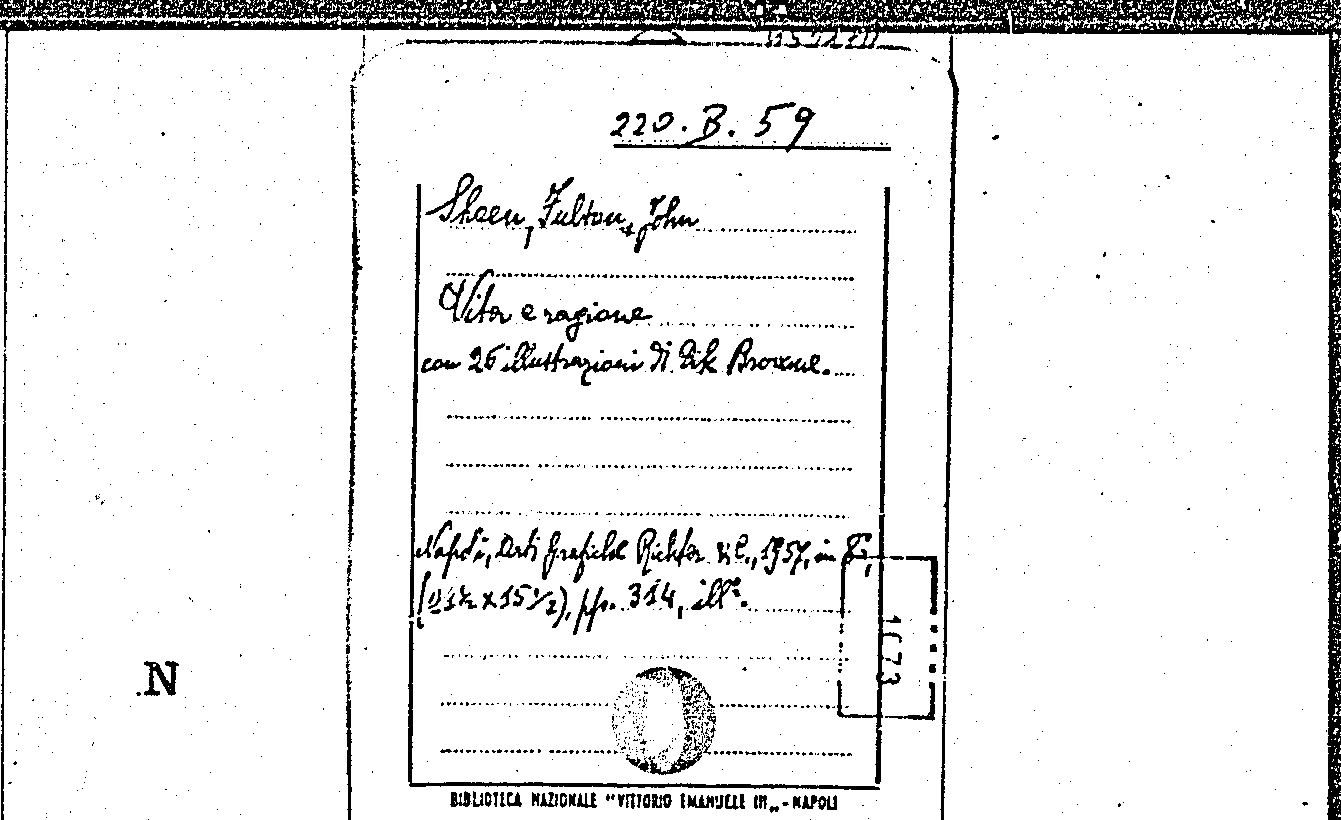 220. B. 59
Sheen, Fulton, John
Vita e ragione
con 26 illustrazioni di Dik Browne.
Napoli, Arti Grafiche Richter & C., 1957, in 8°,
(21½ x 15½), pp. 314, ill.
1073
N
BIBLIOTECA NAZIONALE "VITTORIO EMANUELE III„ - NAPOLI